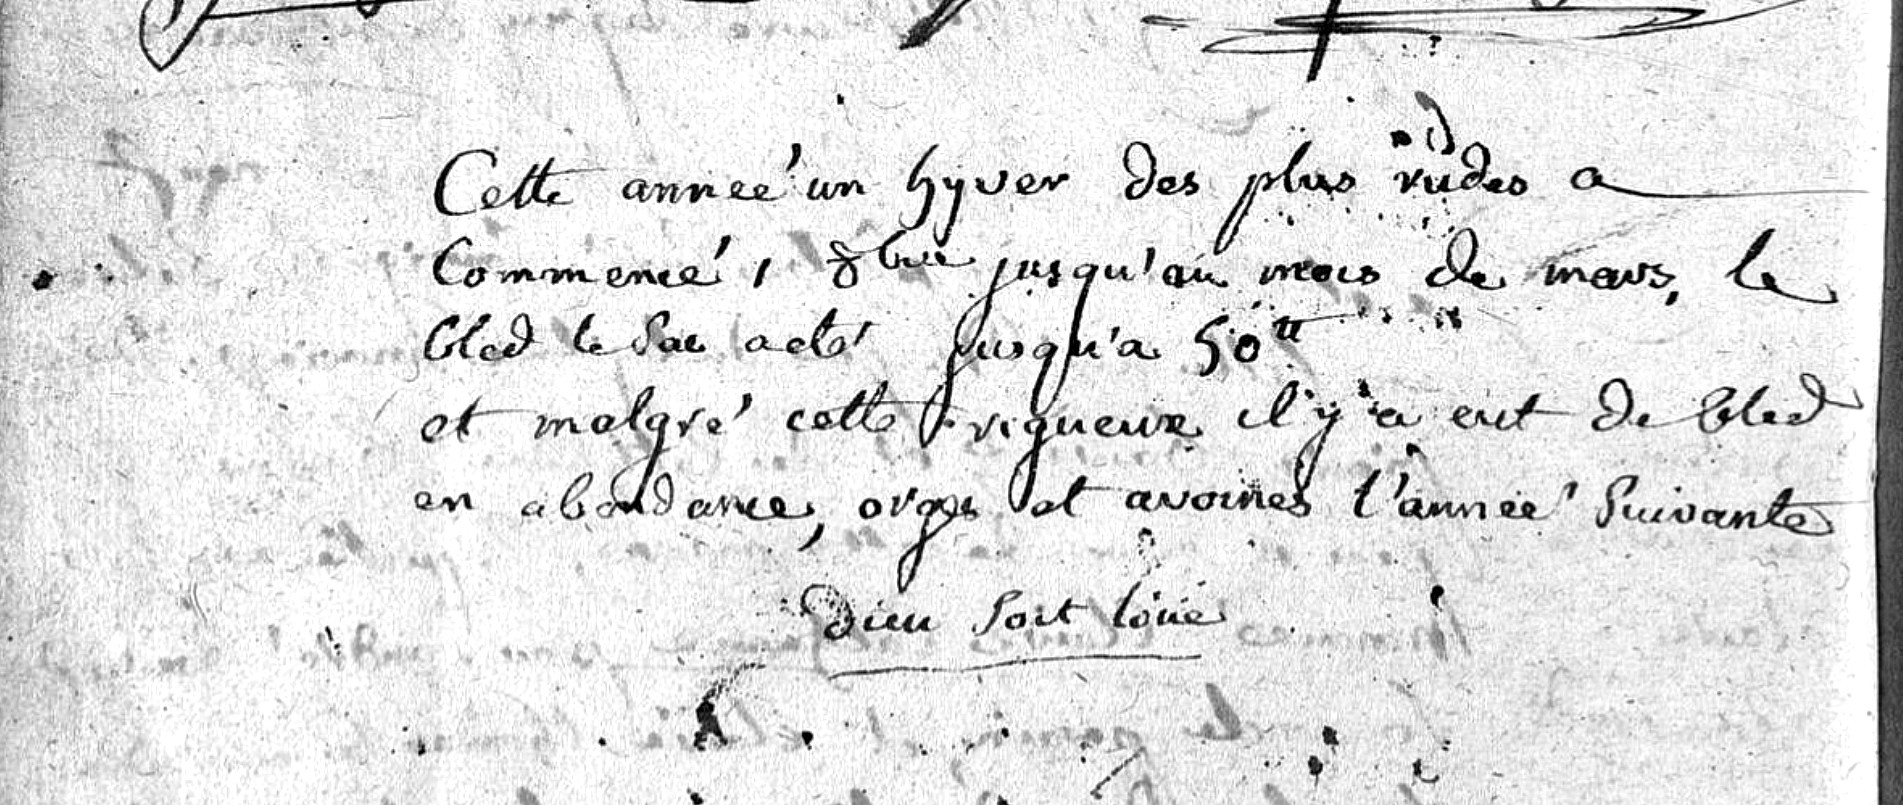 Cette anneé un hyver des plus rudes a
Commencé, 8bre jusqu'au mois de mars, le
bled le sac a eté jusqu'a 50tt
et malgré cette rigueure il y a eut de bled
en abondance, orges et avoines l'anneé suivante
dieu soit loüé